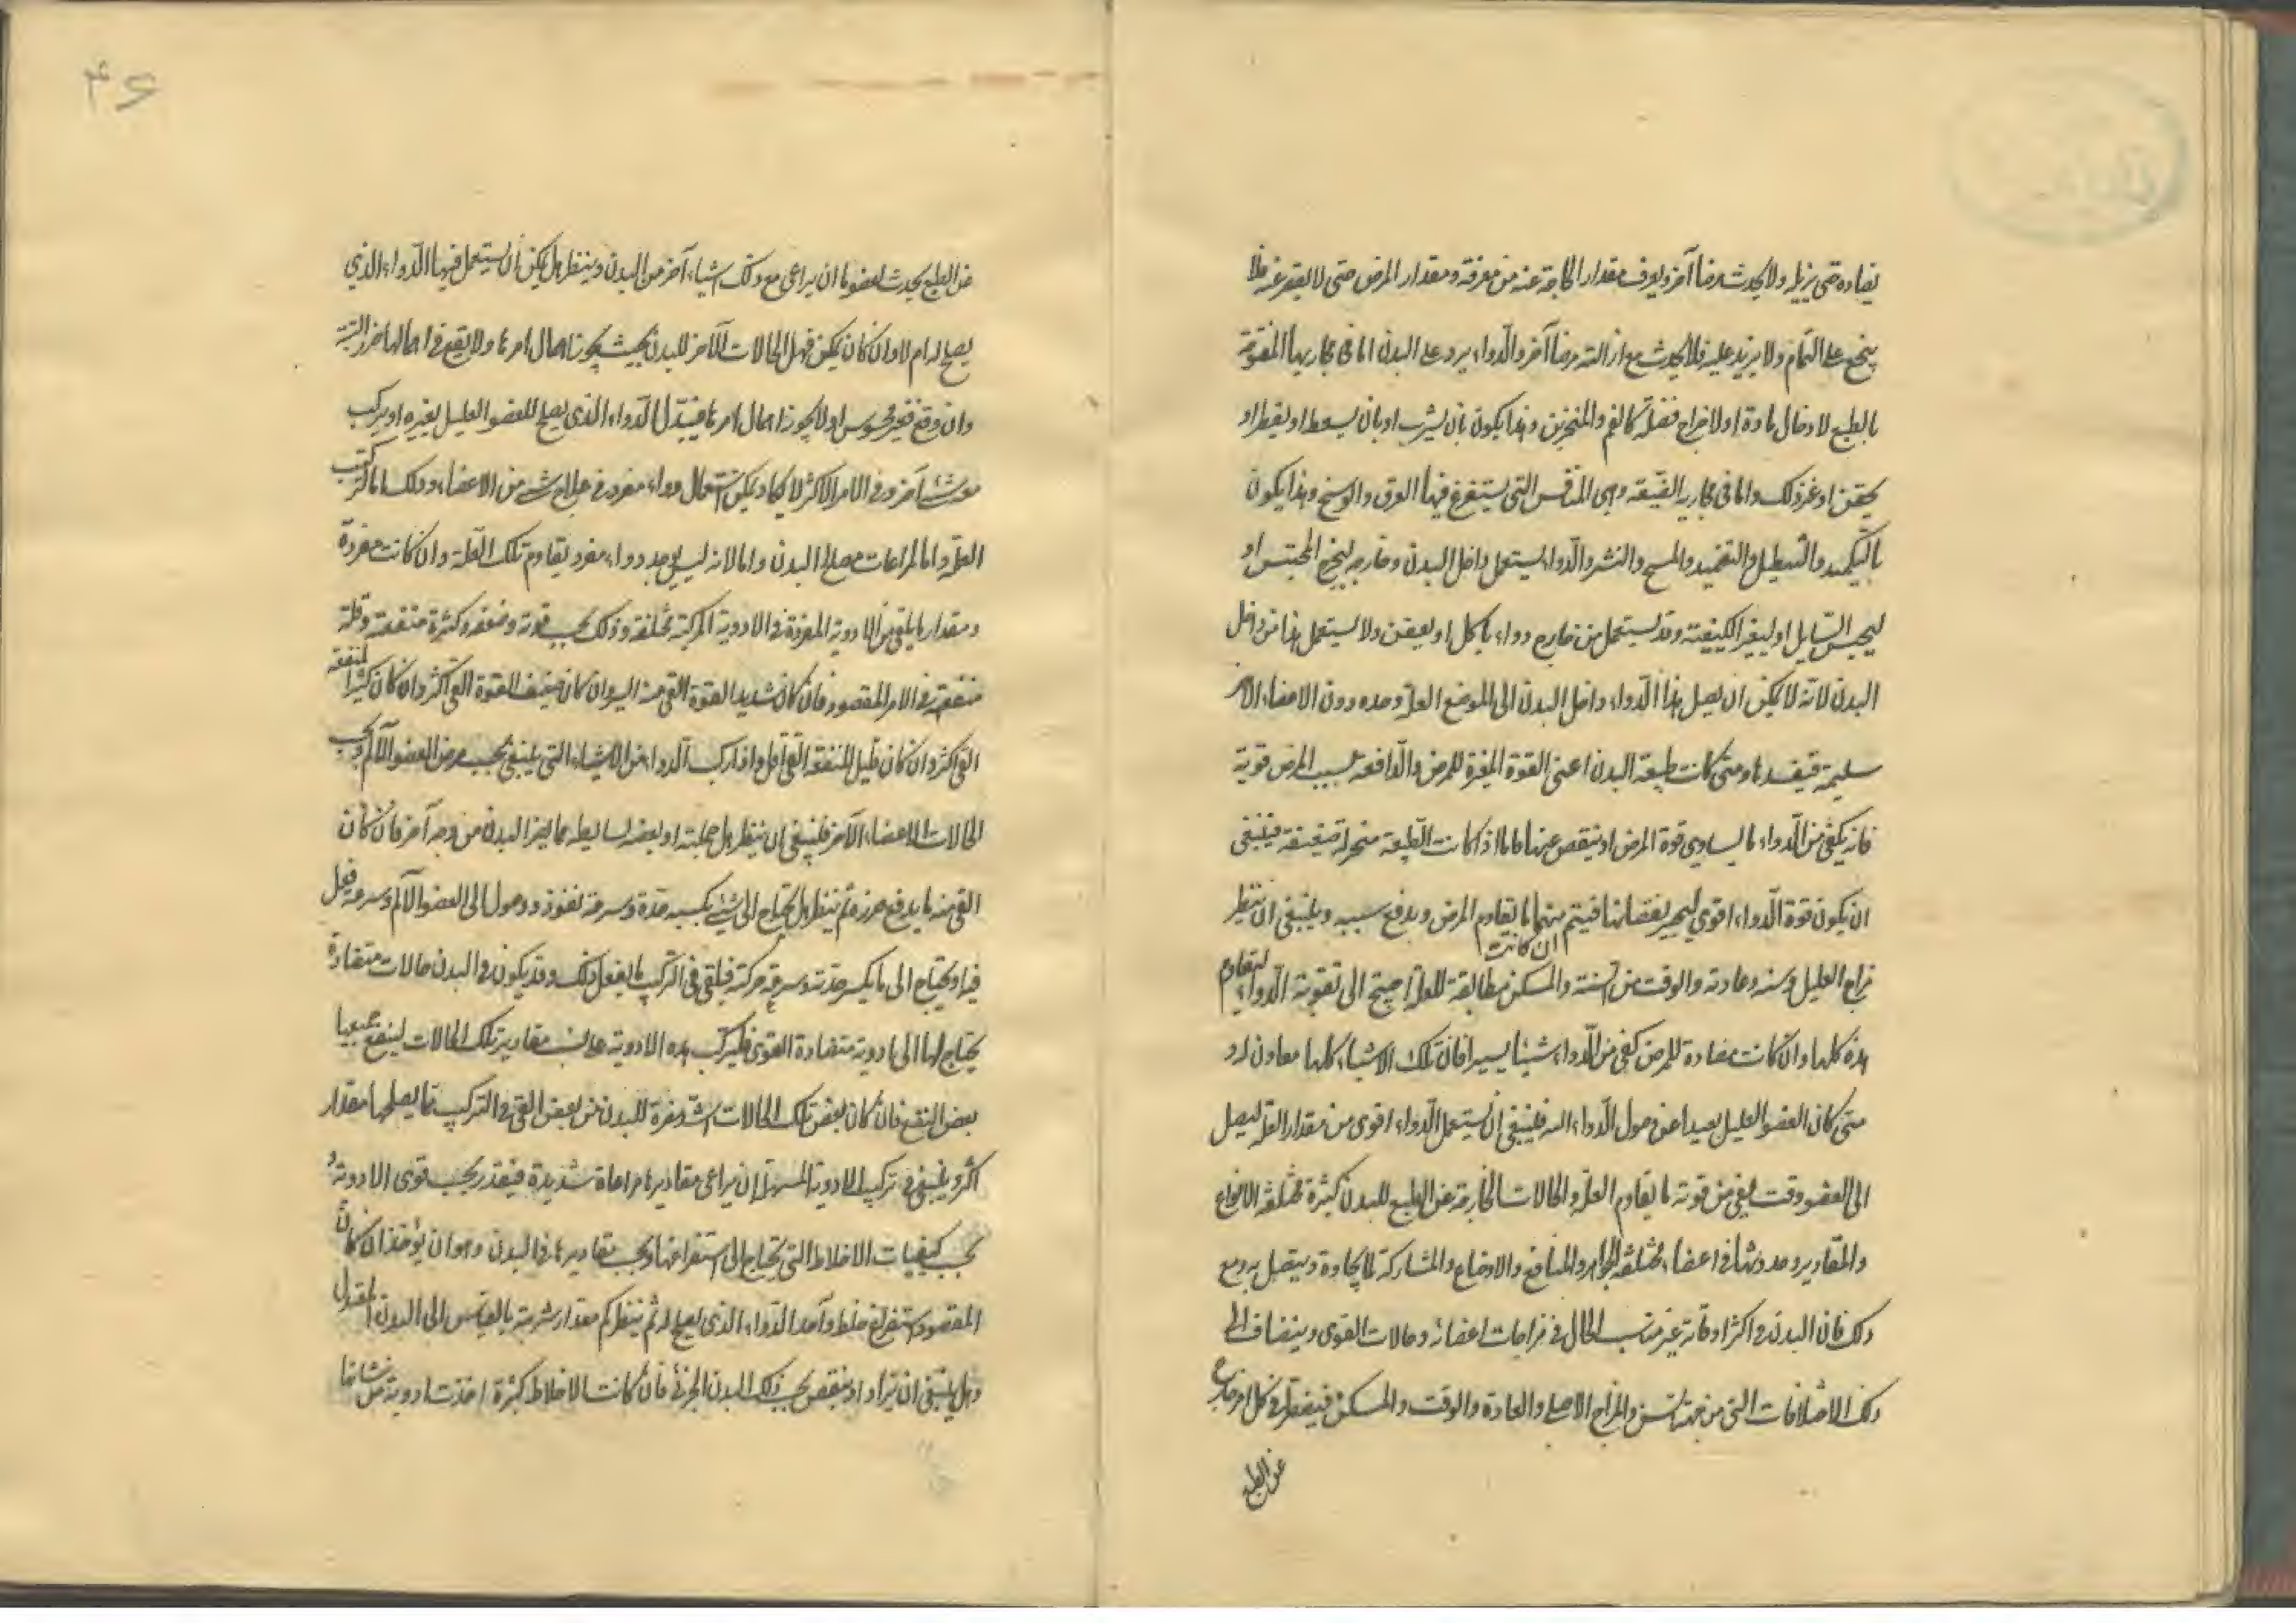 يضاده حتى يزيله ولا يحدث مرضا آخر ويعرف مقدار الحاجة عنه من معرفة ومقدار المرض حتى لا يقصر عنه فلا
ينجع على التمام ولا يزيد عليه فلا يحدث مع ازالته مرضا آخر والدواء يرد على البدن اما فى مجاريها المفتوحة
بالطبع لادخال مادة او لاخراج فضلة كالفم والمنخرين وهذا يكون بان يشرب او بان يسعط او يقطر او
يحقن او غير ذلك واما فى مجاريه الضيقة وهى المنافس التى يستفرغ فيها العرق والوسخ وهذا يكون
بالتكميد والتنطيل والتضميد والمسح والنشر والدواء يستعمل داخل البدن وخارجه ليخرج المحتبس او
ليحبس السايل او ليغير الكيفية وقد يستعمل من خارج دواء ياكل او يعفن ولا يستعمل هذا من داخل
البدن لانه لا يمكن ان يصل هذا الدواء داخل البدن الى الموضع العلة وحده دون الاعضاء الاخر
سليمة فيفسدها ومتى كانت طبيعة البدن اعنى القوة المغيرة للمرض والدافعة لسبب المرض قوية
فانه يكفى من الدواء ما يساوى قوة المرض او ينقص عنها فاما اذا كانت الطبيعة منخزلة ضعيفة فينبغى
ان يكون قوة الدواء اقوى ليجبر نقصانها فيتم منهما ما يقاوم المرض ويدفع سببه وينبغى ان ينظر
ان كانت
مزاج العليل وسنه وعادته والوقت من السنة والمسكن مطابقة للعلة احتيج الى تقوية الدواء ليقاوم
هذه كلها وان كانت مضادة للمرض كفى من الدواء شيئا يسيرا فان تلك الاشياء كلها معاون له و
متى كان العضو العليل بعيدا عن وصول الدواء اليه فلينبغى ان يستعمل الدواء اقوى من مقدار العلة ليصل
الى العضو وقت بقى من قوته ما يقاوم العلة والحالات الخارجة عن الطبع للبدن كثيرة مختلفة الانواع
والمقادير وحدوثها فى اعضاء مختلفة الجواهر والمنافع والاوضاع والمشاركة لما يجاوره ويتصل به ومع
ذلك فان البدن فى اكثر اوقاته غير متناسب الحال فى مزاجات اعضائه وحالات القوى وينضاف الى
ذلك الاختلافات التى من جهة السن والمزاج الاصلى والعادة والوقت والمسكن فيضطر فى كل امر خارج
عن الطبع
عن الطبع يحدث لعضو ما ان يراعى مع ذلك اشياء آخر من البدن وينظر هل يمكن ان يستعمل فيها الدواء الذى
يصلح له ام لا وان كان يمكن فهل الحالات الآخر للبدن بحيث يجوز اهمال امرها ولا يقع فى اهمالها ضرر البتة
وان وقع فغير محسوس او لا يجوز اهمال امرها فيبدل الدواء الذى يصلح للعضو العليل بغيره او يركب
مع شئ آخر وفى الامر الاكثر لا يكاد يمكن استعمال دواء مفرد فى علاج شئ من الاعضاء وذلك اما لتركب
العلة واما لمراعات مصالح البدن واما لانه ليس يوجد دواء مفرد يقاوم تلك العلة وان كانت مفردة
ومقدار ما يلقى من الادوية المفردة فى الادوية المركبة مختلفة وذلك بحسب قوته وضعفه وكثرة منفعته وقلة
منفعته فى الامر المقصود فان كان شديد القوة القى منه اليسير وان كان ضعيف القوة القى اكثر وان كان كثير المنفعة
القى اكثر وان كان قليل المنفعة القى اقل واذا ركب الدواء من الاشياء التى ينبغى بحسب مرض العضو الآلم وبحسب
الحالات الاعضاء الآخر فلينبغى ان ينظر هل جملته او بعض بسايطه مما يضر البدن من وجه آخر فان كان
القى منه ما يدفع ضرره ثم ينظر هل يحتاج الى شئ يكسبه حدة وسرعة نفوذ ووصول الى العضو الآلم وسرعة فعل
فيه او يحتاج الى ما يكسر حدته وسرعة حركته فيلقى فى التركيب ما يفعل ذلك وقد يكون فى البدن حالات متضادة
يحتاج لها الى ادوية متضادة القوى فليركب هذه الادوية على نسب مقادير تلك الحالات لينفع جميعها
بعض النفع فان كان بعض تلك الحالات اشد مضرة للبدن من بعض القى فى التركيب مما يصلحها مقدار
اكثر وينبغى فى تركيب الادوية المسهلة ان يراعى مقاديرها مراعاة شديدة فيقدر بحسب قوى الادوية و
بحسب كيفيات الاخلاط التى يحتاج الى استفراغها وبحسب مقاديرها فى البدن وهو ان يؤخذ ان كان
المقصود استفراغ خلط واحد الدواء الذى يصلح له ثم ينظر كم مقدار شربته بالقياس الى البدن المعتدل
وهل ينبغى ان يزاد او ينقص بحسب ذلك البدن الجزئى فان كانت الاخلاط كثيرة اخذت ادوية من شانها
۴۶